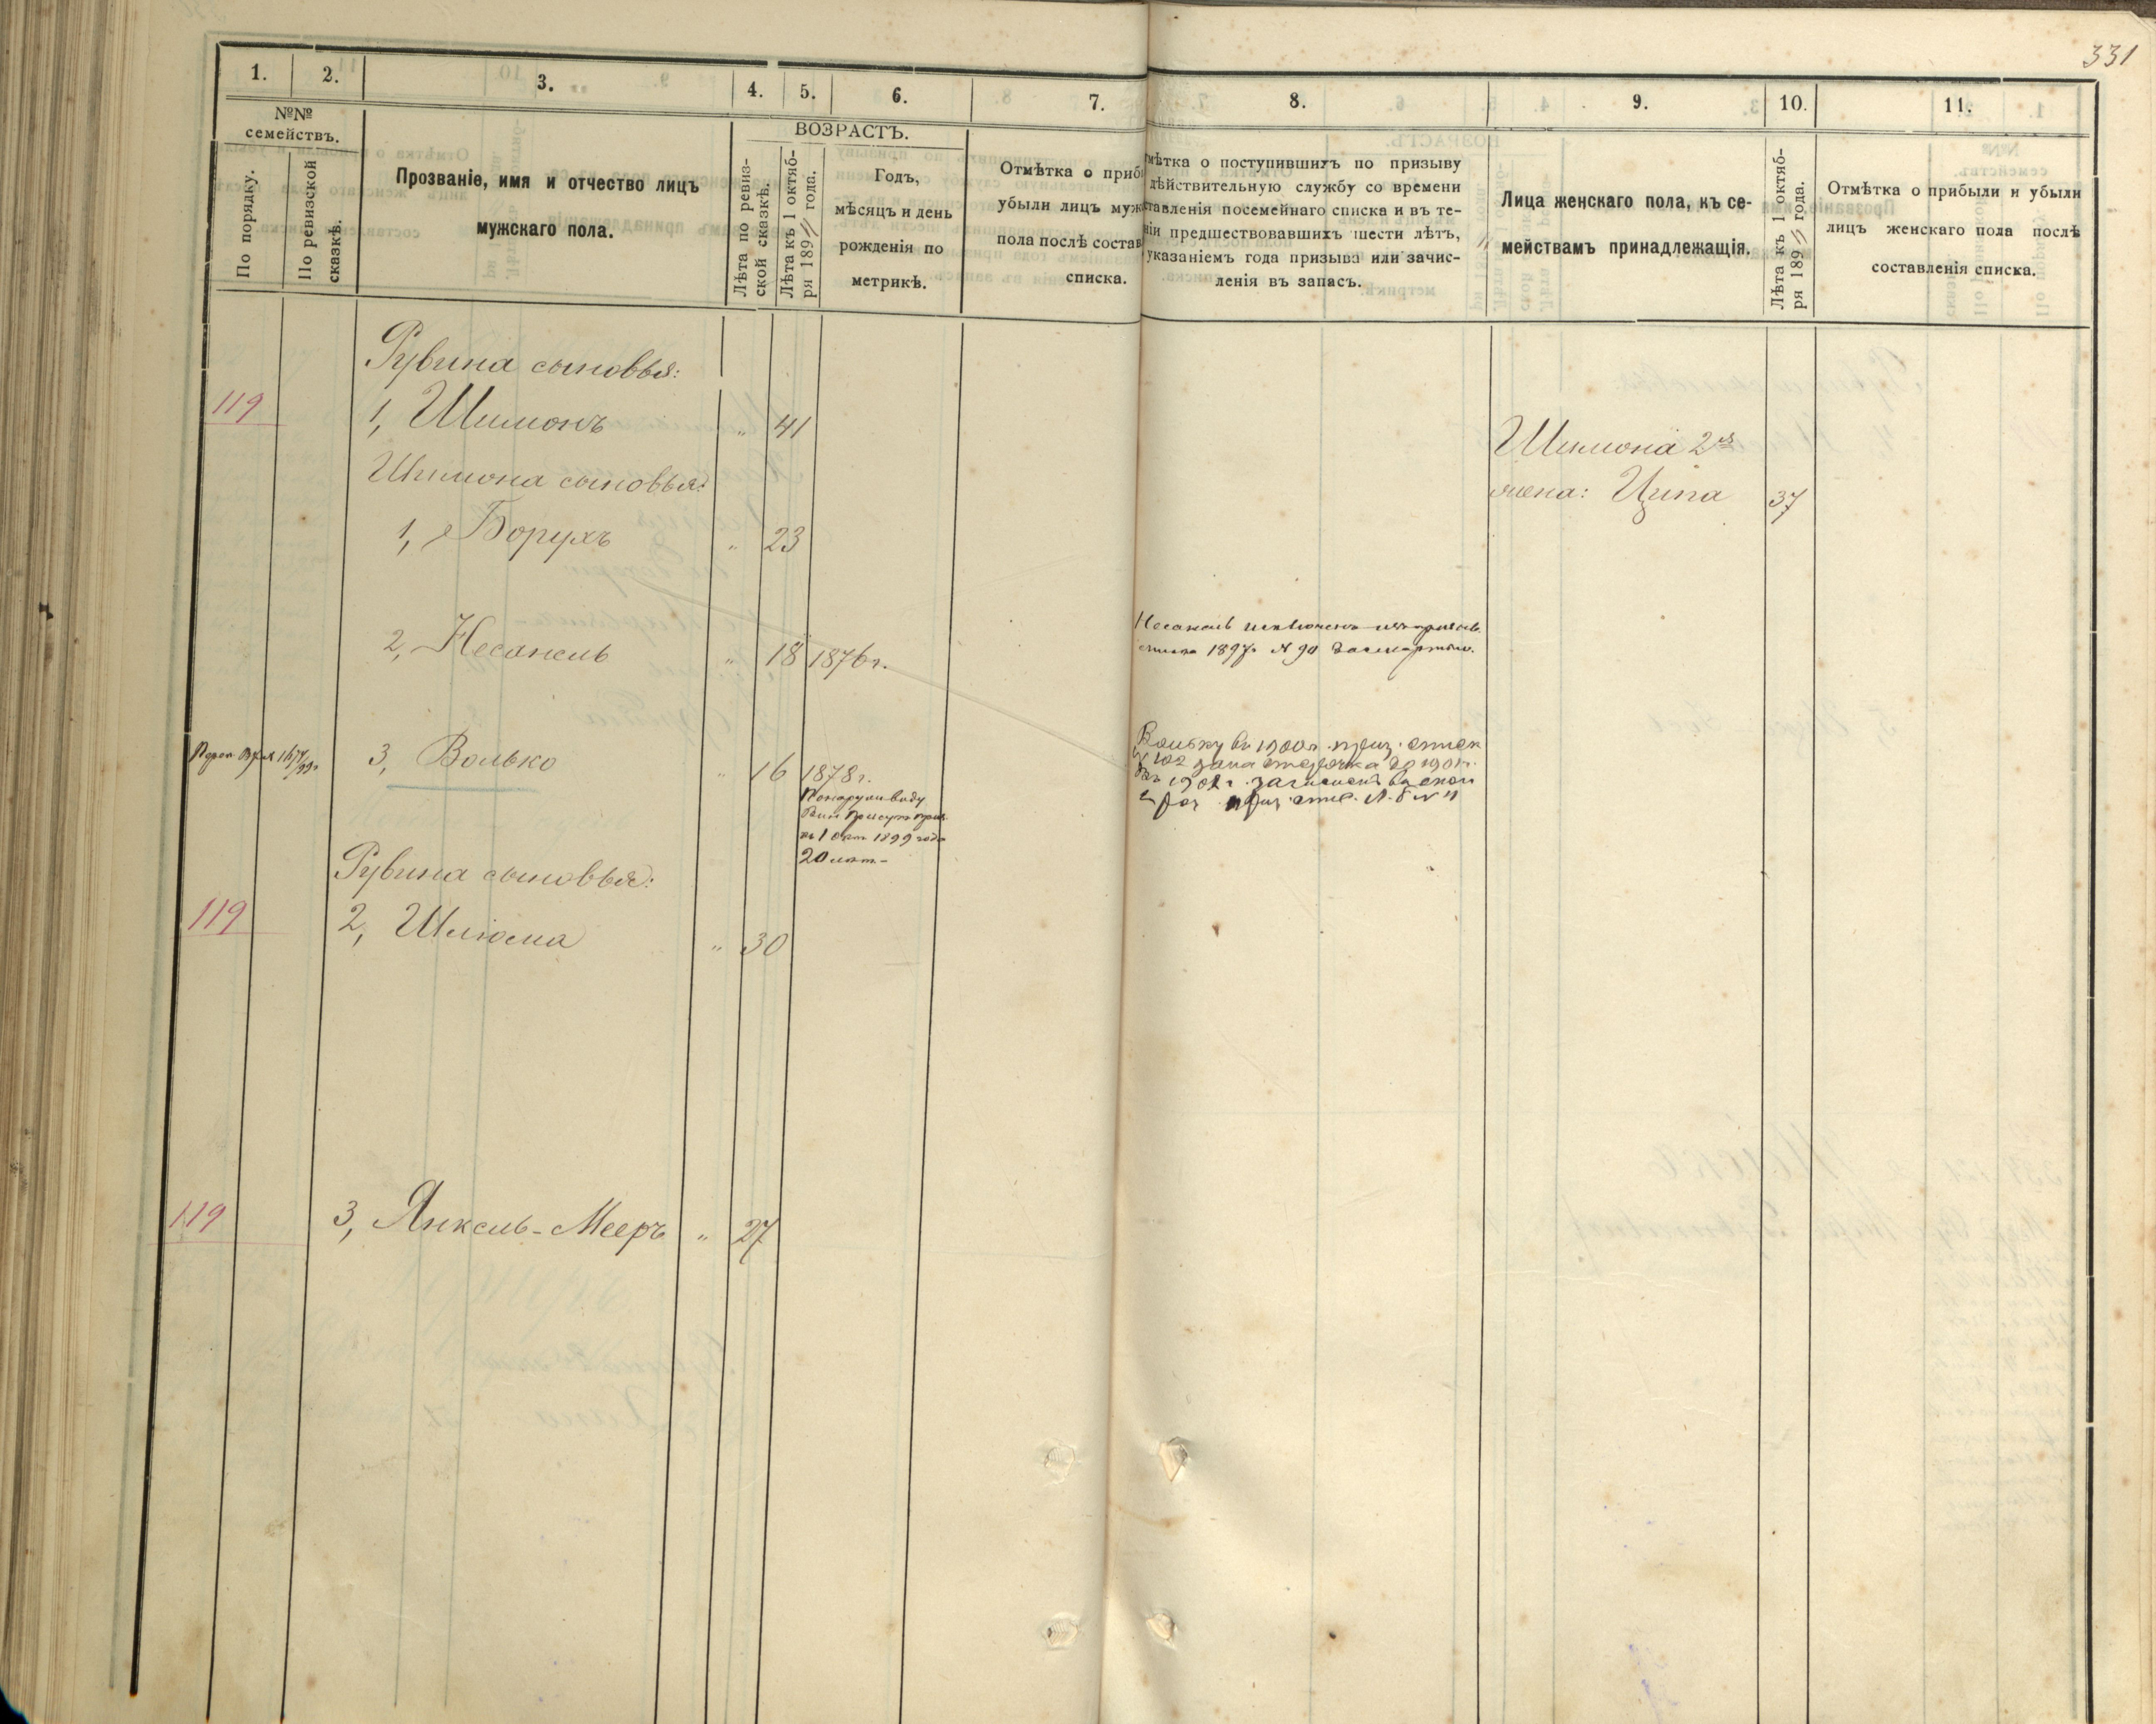 331
1. 2. 3. 4. 5. 6. 7. 8. 9. 10. 11.
№№ семействъ.
По порядку.
По ревизской сказкѣ.
Прозваніе, имя и отчество лицъ
мужскаго пола.
ВОЗРАСТЪ.
Лѣта по ревиз-
ской сказкѣ.
Лѣта къ 1 октяб-
ря 189 года.
Годъ,
мѣсяцъ и день
рожденія по
метрикѣ.
Отмѣтка о приб
убыли лицъ муж
пола послѣ состав
списка.
мѣтка о поступившихъ по призыву
дѣйствительную службу со времени
ставленія посемейнаго списка и въ те-
ніи предшествовавшихъ шести лѣтъ,
указаніемъ года призыва или зачис-
ленія въ запасъ.
Лица женскаго пола, къ се-
мействамъ принадлежащія.
Лѣта къ 1 октяб-
ря 189 года.
Отмѣтка о прибыли и убыли
лицъ женскаго пола послѣ
составленія списка.
Рувина сыновья:
119 1, Шимонъ " 41
Шимона 2я
жена: Ципа 37
Шимона сыновья:
1, Борухъ " 23
2, Несанель " 18 1876 г.
Несанель исключенъ
списка 1897 № 90
3, Волько " 16 1878 г.
1 окт 1899 года
20 лѣт
Вольку въ 1900 г. приз. списк
102 дана отсрочка до 1901 г.
Рувина сыновья:
119 2, Шлюма " 30
119 3, Янкель-Мееръ " 27